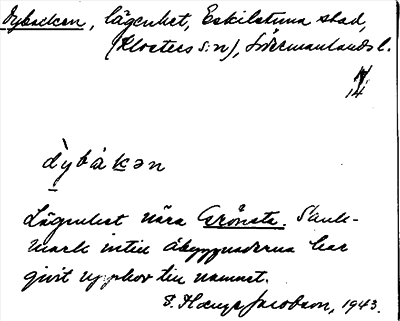 Dybacken, lägenhet, Eskilstuna stad,
(Klosters s:n), Södermanlands l.
dỳbákən
Lägenhet nära Grönsta. Sank-
mark intill åbyggnaderna har
givit upphov till namnet.
Jacobson, 1943.